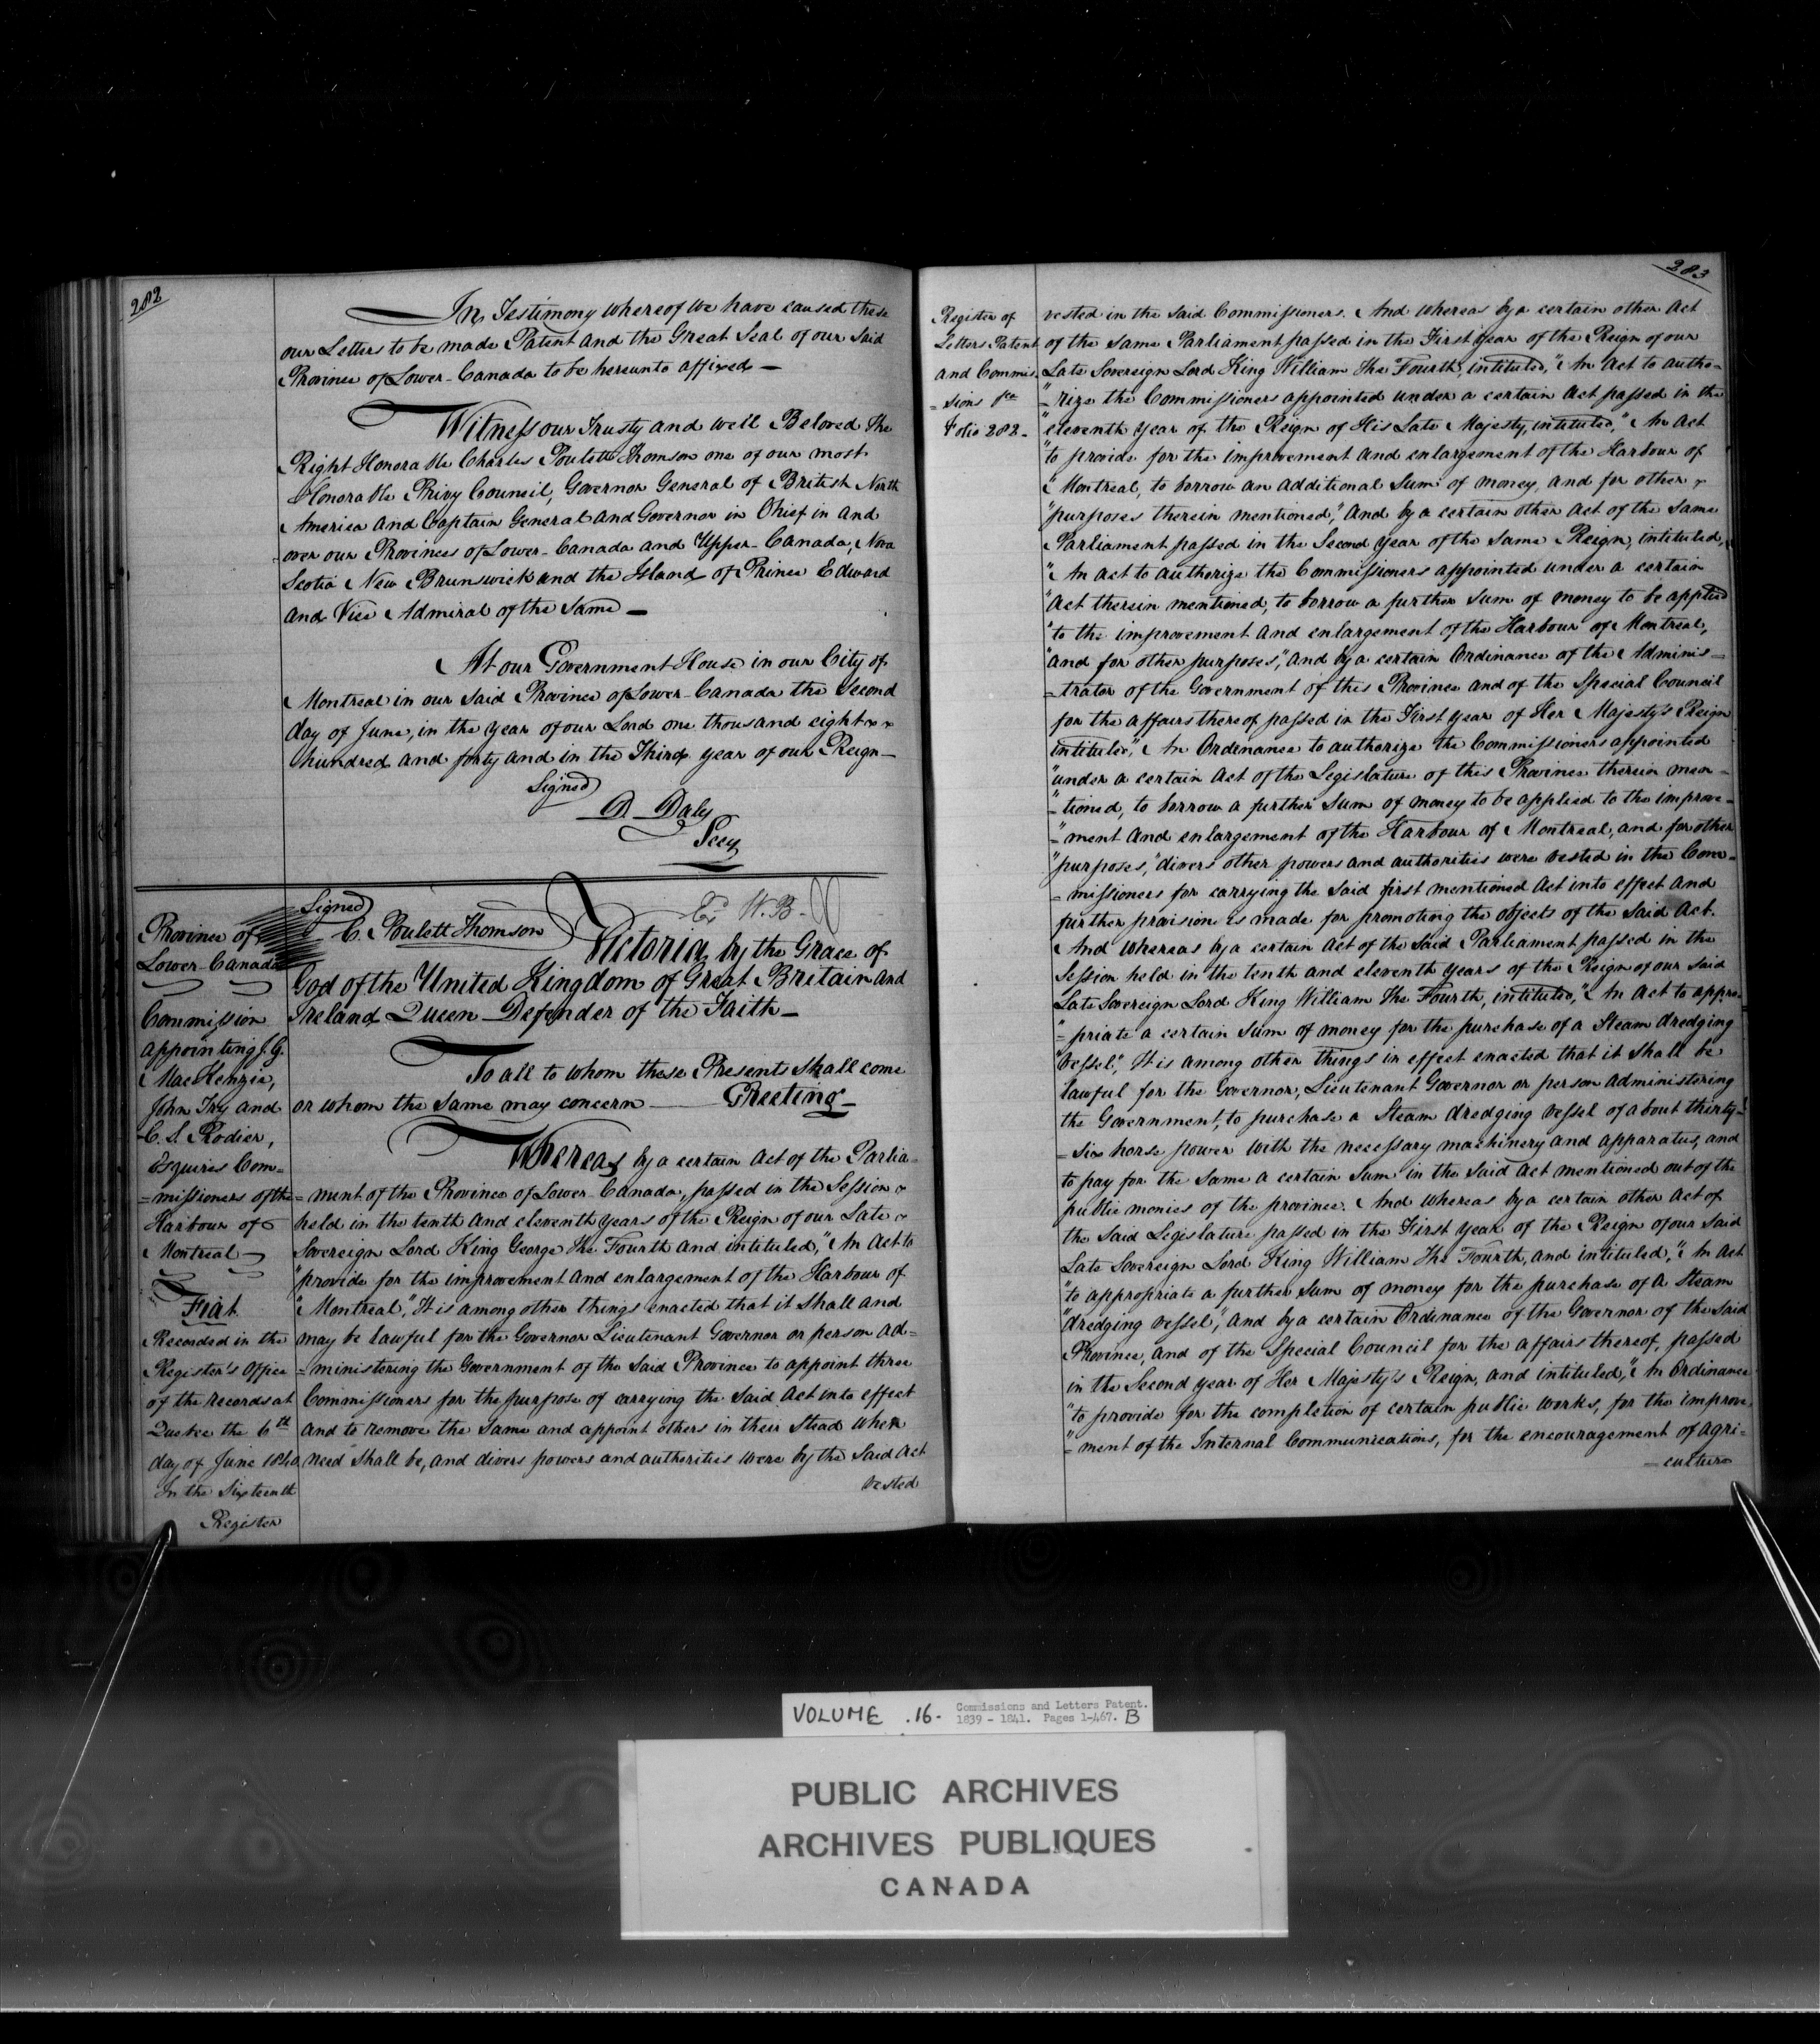 282
In Testimony whereof We have caused these
our Letters to be made Patent and the Great Seal of our Said
Province of Lower-Canada to be hereunto affixed —
Witness our Trusty and well Beloved The
Right Honorable Charles Poulett Thomson one of our most
Honorable Privy Council, Governor General of British North
America and Captain General and Governor in Chief in and
over our Provinces of Lower-Canada and Upper-Canada, Nova
Scotia New Brunswick and the Island of Prince Edward
and Vice Admiral of the Same —
At our Government House in our City of
Montreal in our Said Province of Lower-Canada the Second
day of June, in the year of our Lord one thousand eight
hundred and forty and in the Third year of our Reign —
Signed
D. Daly
Secy
Province of
Lower-Canada
Commission
appointing J. G.
MacKenzie,
John Try and
C. S. Rodier,
Esquires Com=
=missioners of the
Harbour of
Montreal —
Fiat
Recorded in the
Register's Office
of the records at
Quebec the 6th
day of June 1840
In the Sixteenth
Register
Signed
C. Poulett Thomson
W. B.
Victoria by the Grace of
God of the United Kingdom of Great Britain and
Ireland Queen Defender of the Faith —
To all to whom these Presents Shall come
or whom the Same may concern — Greeting —
Whereas by a certain Act of the Parlia=
=ment of the Province of Lower-Canada, passed in the Session
held in the tenth and eleventh years of the Reign of our Late
Sovereign Lord King George The Fourth and intituled, "An Act to
"provide for the improvement and enlargement of the Harbour of
"Montreal," It is among other things enacted that it Shall and
may be lawful for the Governor Lieutenant Governor or person ad=
=ministering the Government of the Said Province to appoint three
Commissioners for the purpose of carrying the Said Act into effect
and to remove the Same and appoint others in their Stead when
need Shall be, and divers powers and authorities were by the Said Act
vested
283
Register of
Letters Patent
and Commis=
=sions &ca
Folio 282 —
vested in the Said Commissioners. And whereas by a certain other Act
of the Same Parliament passed in the First year of the Reign of our
Late Sovereign Lord King William The Fourth, intituled, "An Act to autho=
"=rize the Commissioners appointed under a certain Act passed in the
"eleventh year of the Reign of His Late Majesty, intituled, "An Act
"to provide for the improvement and enlargement of the Harbour of
"Montreal, to borrow an additional Sum of money, and for other
"purposes therein mentioned," and by a certain other Act of the Same
Parliament passed in the Second year of the Same Reign, intituled,
"An Act to authorize the Commissioners appointed under a certain
"Act therein mentioned, to borrow a further Sum of money to be applied
"to the improvement and enlargement of the Harbour of Montreal,
"and for other purposes," and by a certain Ordinance of the Adminis=
=trator of the Government of this Province and of the Special Council
for the affairs thereof passed in the First year of Her Majesty's Reign
intituled, "An Ordinance to authorize the Commissioners appointed
"under a certain Act of the Legislature of this Province therein men=
"=tioned, to borrow a further Sum of money to be applied to the improve=
"=ment and enlargement of the Harbour of Montreal, and for other
"purposes," divers other powers and authorities were vested in the Com=
=missioners for carrying the Said first mentioned Act into effect and
further provision is made for promoting the objects of the Said Act.
And whereas by a certain Act of the Said Parliament passed in the
Session held in the tenth and eleventh years of the Reign of our Said
Late Sovereign Lord King William The Fourth, intituled, "An Act to appro=
"=priate a certain Sum of money for the purchase of a Steam dredging
"Vessel," It is among other things in effect enacted that it Shall be
lawful for the Governor, Lieutenant Governor or person administering
the Government, to purchase a Steam dredging vessel of about thirty=
=six horse power with the necessary machinery and apparatus, and
to pay for the Same a certain Sum in the Said Act mentioned out of the
public monies of the province. And whereas by a certain other Act of
the Said Legislature passed in the First year of the Reign of our Said
Late Sovereign Lord King William The Fourth, and intituled, "An Act
"to appropriate a further Sum of money for the purchase of a Steam
"dredging vessel", and by a certain Ordinance of the Governor of the Said
Province, and of the Special Council for the affairs thereof, passed
in the Second year of Her Majesty's Reign, and intituled, "An Ordinance
"to provide for the completion of certain public works, for the improve=
"=ment of the Internal Communications, for the encouragement of agri=
=culture
VOLUME .16. Commissions and Letters Patent.
1839 - 1841. Pages 1-467. B
PUBLIC ARCHIVES
ARCHIVES PUBLIQUES
CANADA